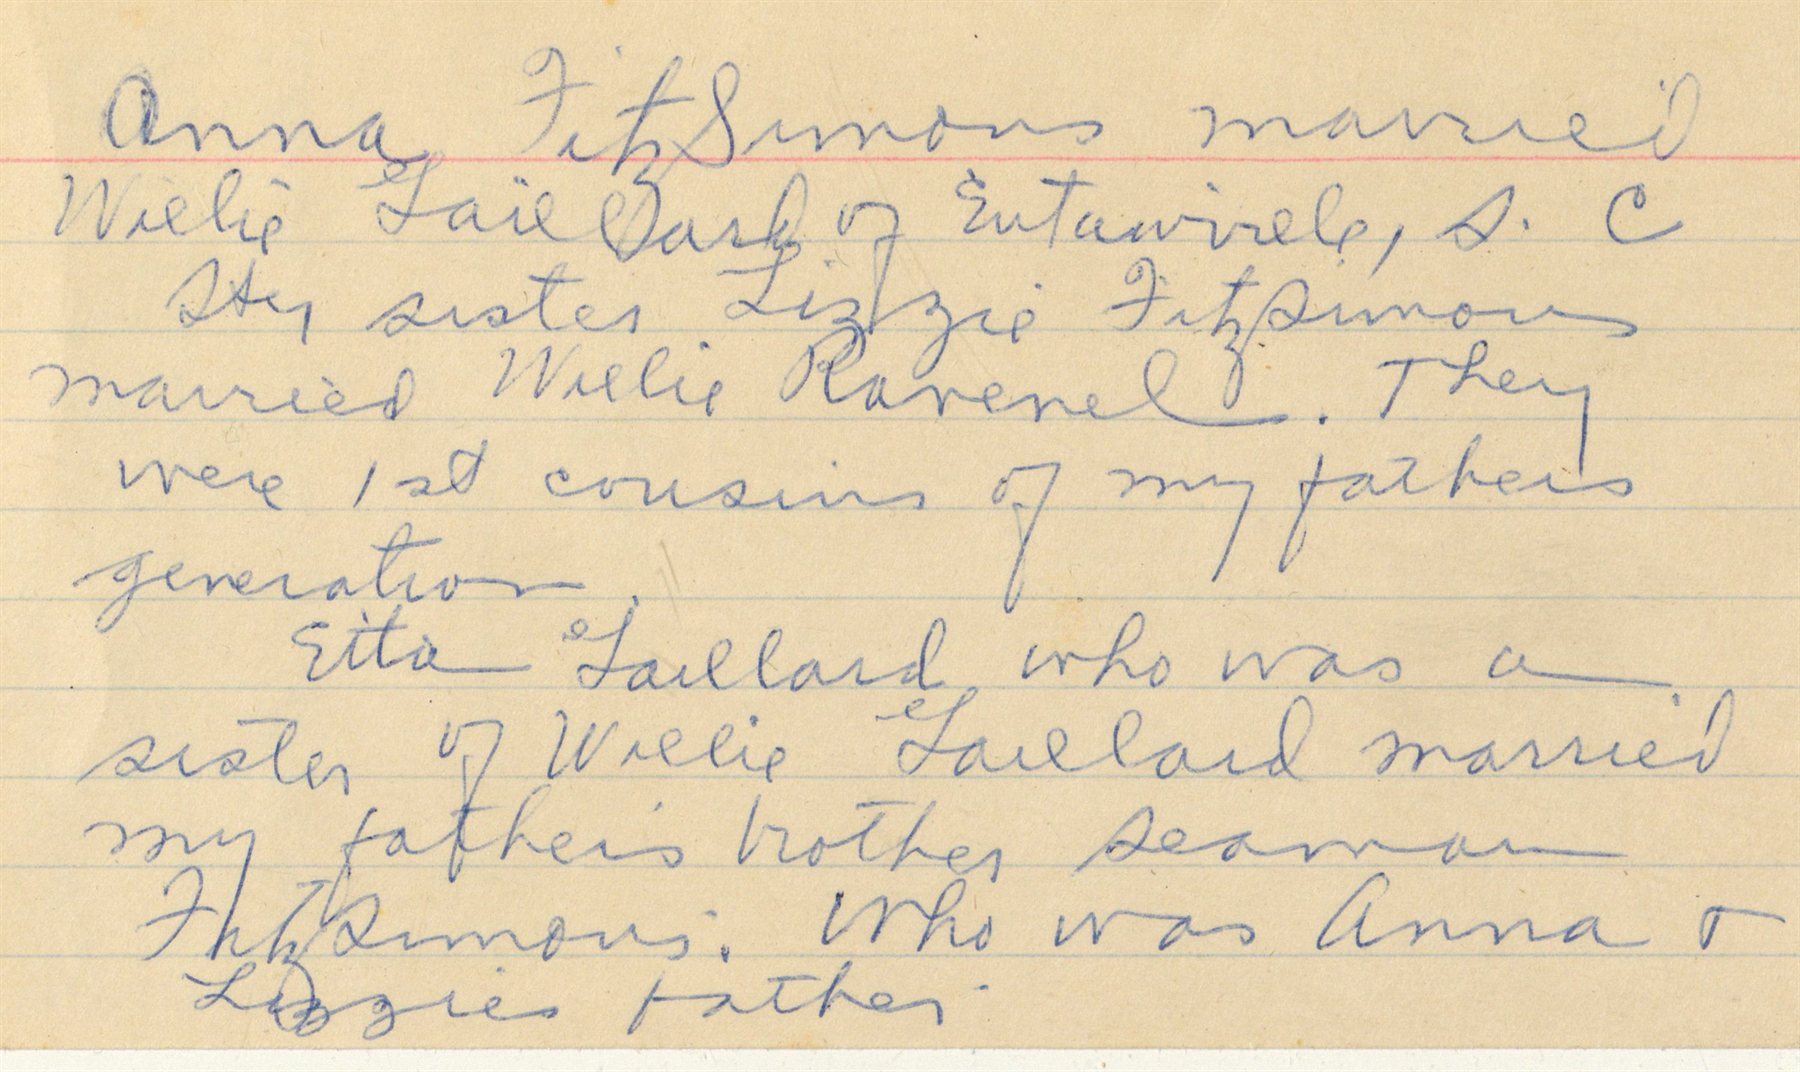 Anna FitzSimons married
Willie Gaillard of Eutawville, S. C
Her sister Lizzie FitzSimons
married Willie Ravenel. They
were 1st cousins of my fathers
generation.
Etta Gaillard who was a
sister of Willie Gaillard married
my father's brother Seaman
FitzSimons. Who was Anna &
Lizzies father